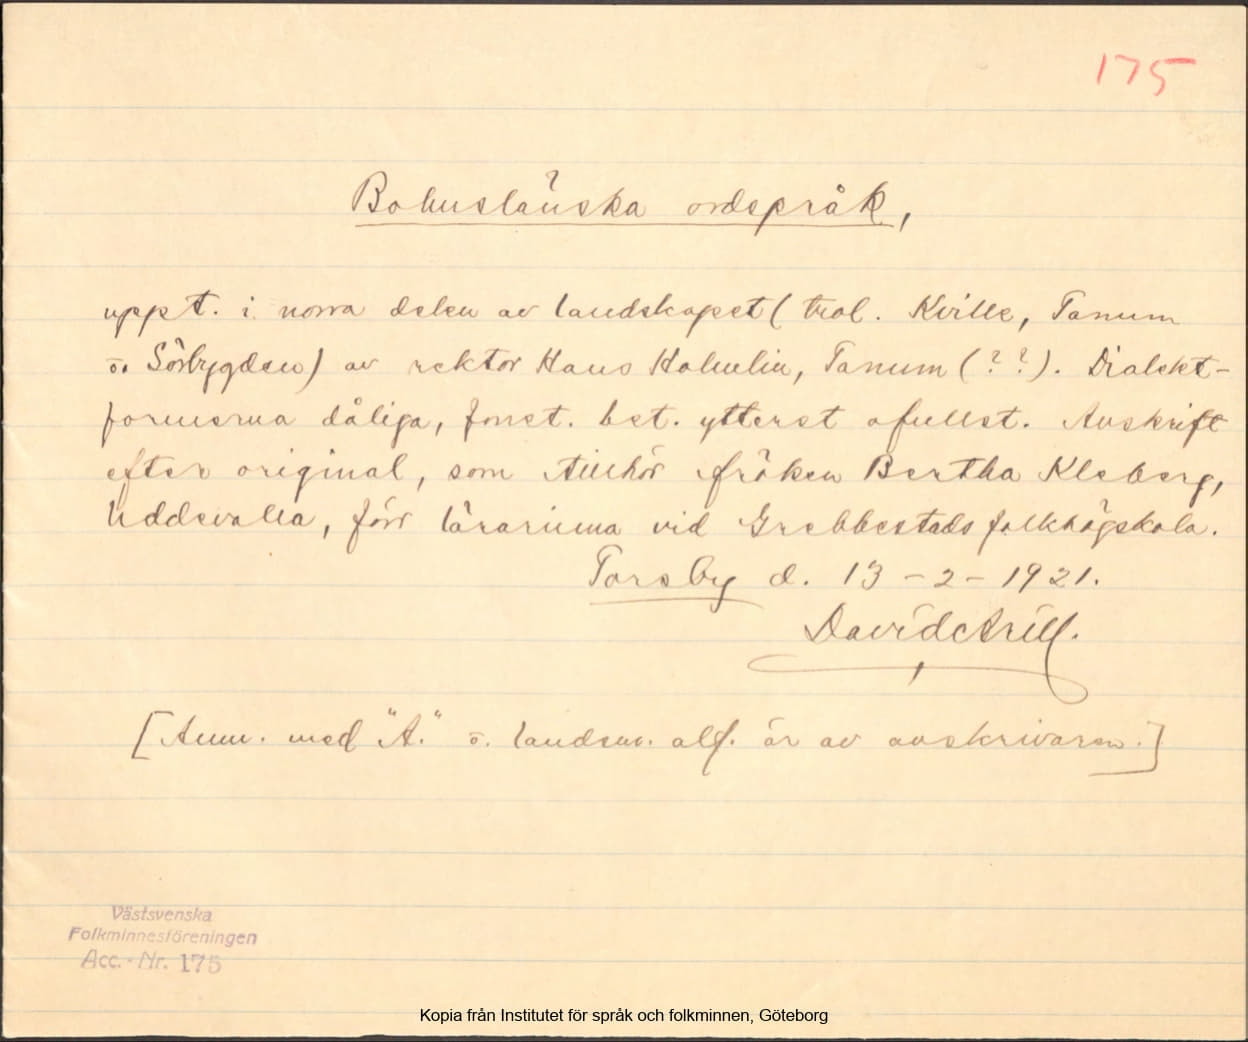 175
Bohuslänska ordspråk,
uppt. i norra delen av landskapet (trol. Kville, Tanum
o. Sörbygden) av rektor Hans Holmlin, Tanum (??). Dialekt-
formerna dåliga, fonet. bet. ytterst ofullst. Avskrift
efter original, som tillhör fröken Bertha Kleberg,
Uddevalla, förr lärarinna vid Grebbestads folkhögskola.
Torsby d. 13-2-1921.
David Arill.
[Anm. med "A." o. landsm. alf. är av avskrivaren.]
Västsvenska
Folkminnesföreningen
Acc.-Nr. 175
Kopia från Institutet för språk och folkminnen, Göteborg